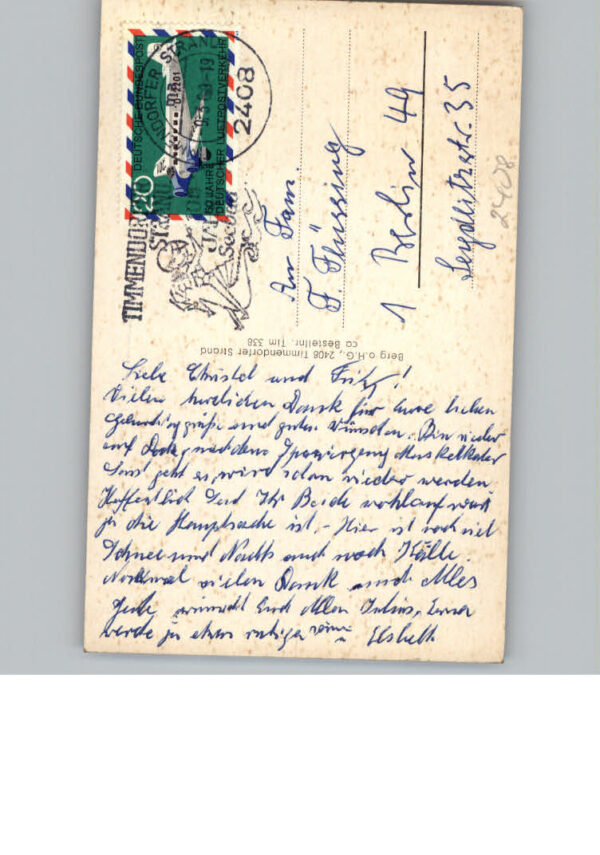 Liebe Christel und Fritz!
Vielen herzlichen Dank für Eure lieben
Geburtstagsgrüße und guten Wünschen. Bin wieder
auf Deck, nach dem Spaziergang Muskelkater
Sonst geht es, wird schon wieder werden
Hoffentlich Seid Ihr Beide wohlauf was
ja die Hauptsache ist. - Hier ist noch viel
Schnee und Nachts auch noch Kälte.
Nochmal vielen Dank und Alles
Gute wünscht Euch Allen Julius, Erna
werde ja etwas ruhiger Elsbeth
DEUTSCHE BUNDESPOST
20
50 JAHRE
DEUTSCHER LUFTPOSTVERKEHR
D-2201
TIMMENDORFER STRAND
2408
TIMMENDORFER
STRAND
An Fam.
F. Flüssing
1 Berlin 49
35
2408
Berg o.H.G., 2408 Timmendorfer Strand
co Bestellnr. Tim 338